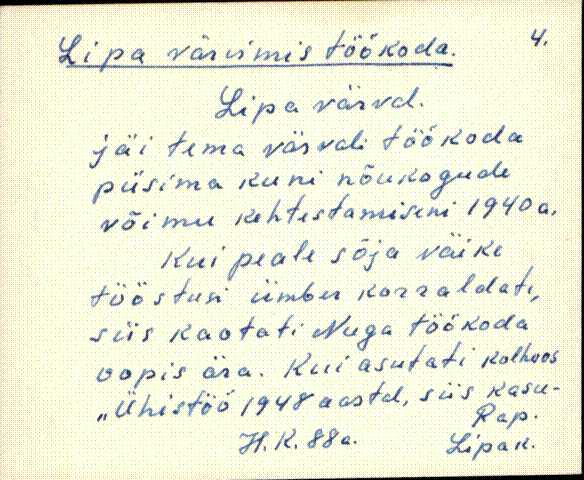 Lipa värvimis töökoda. 4.
Lipa värvd.
jäi tema värvdi töökoda
püsima kuni nõukogude
võimu kehtestamiseni 1940a.
Kui peale sõja väike
tööstusi ümber korraldati,
siis kaotati Nuga töökoda
oopis ära. Kui asutati kolhoos
„Ühistöö 1948 aastd, siis kasu-
Rap.
H.K. 88a. Lipa k.